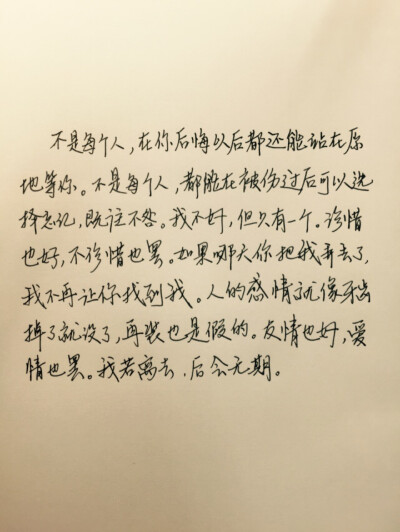 不是每个人，在你后悔以后都还能站在原
地等你。不是每个人，都能在被伤过后可以选
择忘记，既往不咎。我不好，但只有一个。珍惜
也好，不珍惜也罢。如果哪天你把我弄丢了，
我不再让你找到我。人的感情就像牙齿
掉了就没了，再装也是假的。友情也好，爱
情也罢。我若离去，后会无期。